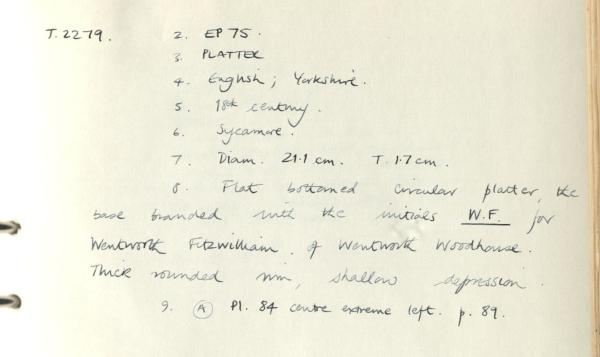 T.2279. 2. EP 75.
3. PLATTER
4. English; Yorkshire.
5. 18th century.
6. Sycamore.
7. Diam. 21.1 cm. T. 1.7 cm.
8. Flat bottomed circular platter, the
base branded with the initials W.F. for
Wentworth Fitzwilliam, of Wentworth Woodhouse.
Thick rounded rim, shallow depression.
9. (A) Pl. 84 centre extreme left. p. 89.